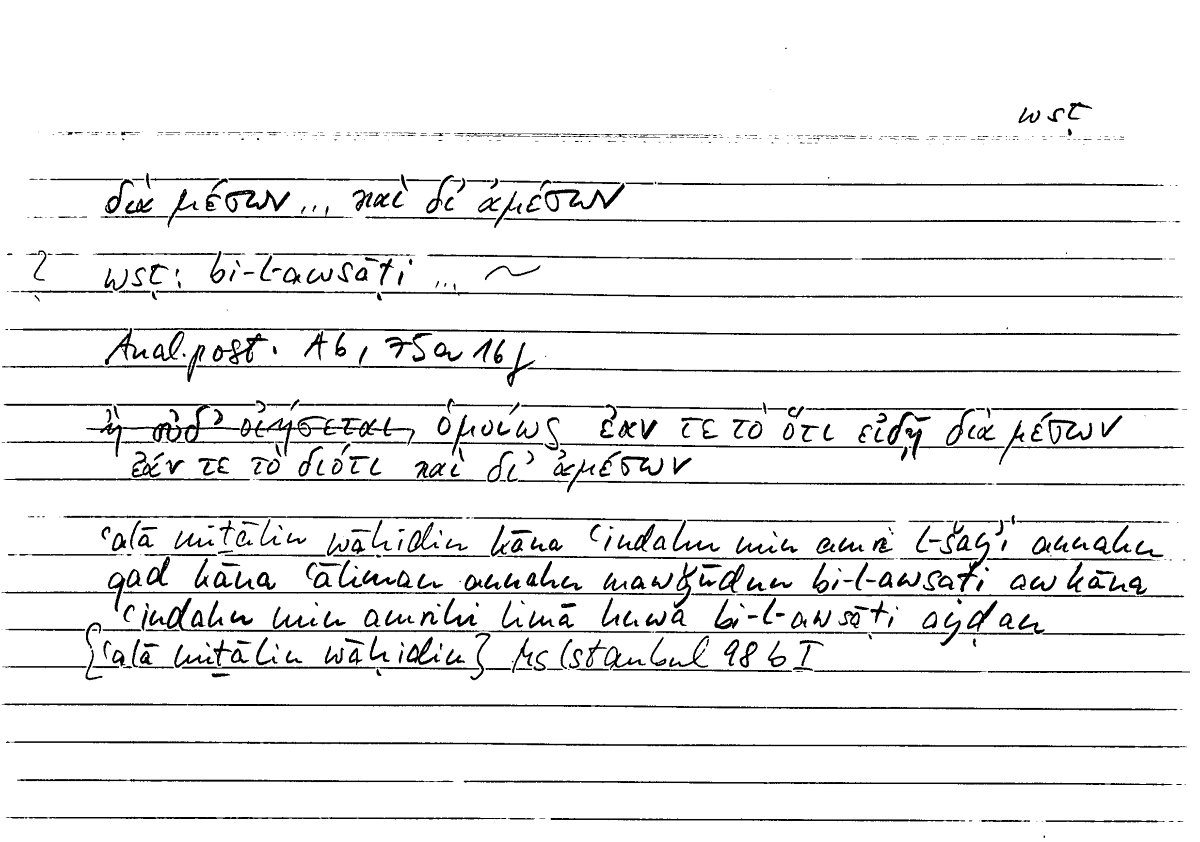 wsṭ
διὰ μέσων ... καὶ δι' ἀμέσων
? wsṭ: bi-l-awsāṭi ... ~
Anal. post. A6, 75a 16f
ἢ οὐδ' οἰήσεται, ὁμοίως ἐάν τε τὸ ὅτι εἰδῇ διὰ μέσων
ἐάν τε τὸ διότι καὶ δι' ἀμέσων
ʿalā miṯālin wāḥidin kāna ʿindahu min amri l-šayʾi annahu
qad kāna ʿāliman annahu mawǧūdun bi-l-awsaṭi aw kāna
ʿindahu min amrihi limā huwa bi-l-awsāṭi ayḍan
{ʿalā miṯālin wāḥidin} Ms Istanbul 98 b I